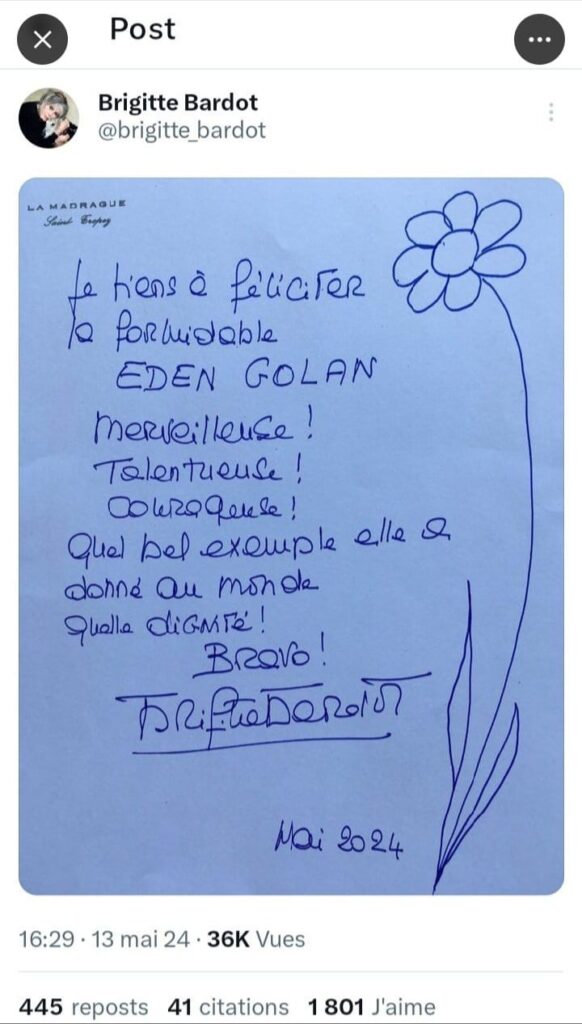 Post
Brigitte Bardot
@brigitte_bardot
LA MADRAGUE
Saint Tropez
Je tiens à féliciter
la formidable
EDEN GOLAN
Merveilleuse !
Talentueuse !
Courageuse !
Quel bel exemple elle a
donné au monde
Quelle DIGNITÉ !
BRAVO !
Brigitte Bardot
Mai 2024
16:29 · 13 mai 24 · 36K Vues
445 reposts 41 citations 1 801 J'aime